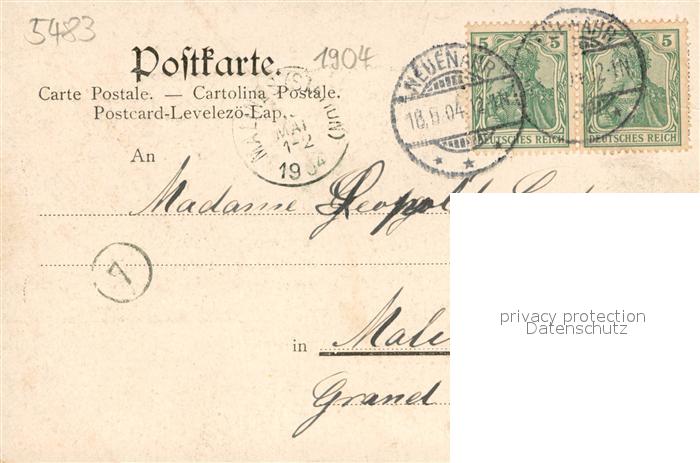 5483
1904
Postkarte.
Carte Postale. — Cartolina Postale.
Postcard-Levelezö-Lap.
5 5
DEUTSCHES REICH DEUTSCHES REICH
NEUENAHR
MAI
1-2
1904
An
Madame Leopold
7
in Mali
Grand
privacy protection
Datenschutz